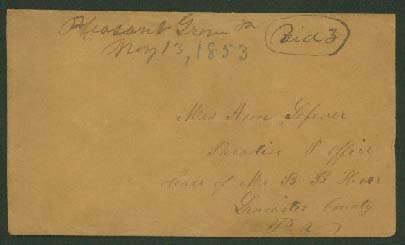 Pleasant Grove Pa
Paid 3
Nov 13, 1853
Mrs Ann Lefever
Paradise P office
Care of Mr B B
Lancaster County
Pa